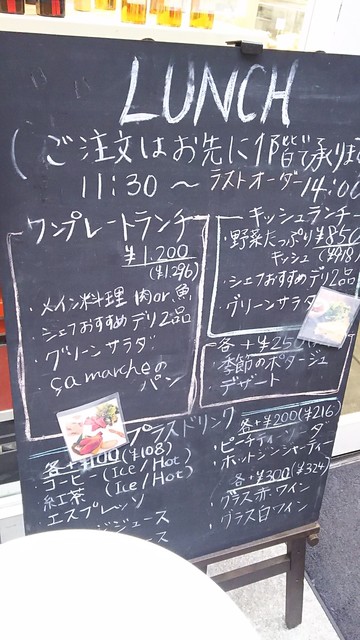 LUNCH
(ご注文はお先に1階で承りま
11:30 〜 ラストオーダー14:00
ワンプレートランチ
¥1,200
(¥1,296)
・メイン料理 肉or魚
・シェフおすすめデリ2品
・グリーンサラダ
・ça marcheの
パン
キッシュランチ
・野菜たっぷり ¥850
キッシュ (¥918)
・シェフおすすめデリ2品
・グリーンサラダ
各+¥250
・季節のポタージュ
・デザート
プラスドリンク
各+¥100(¥108)
コーヒー (Ice/Hot)
紅茶 (Ice/Hot)
エスプレッソ
ジュース
ース
各+¥200(¥216
・ピーチティーダ
・ホットジンジャーティー
各+¥300(¥324)
・グラス赤ワイン
・グラス白ワイン